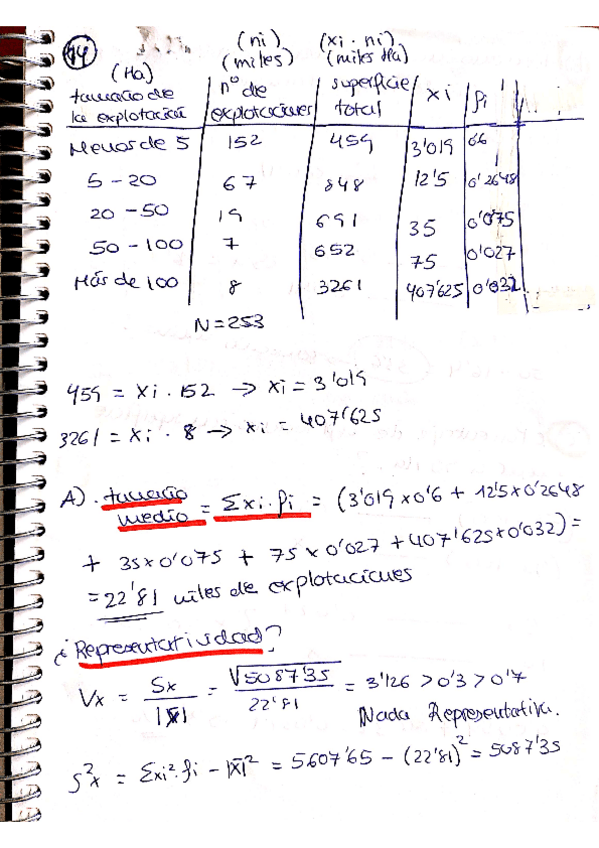 14
(ni) (xi · ni)
(Ha) (miles) (miles Ha)
tamaño de la explotación nº de explotaciones superficie total xi fi
Menos de 5 152 459 3'019 0'6
5-20 67 848 12'5 0'2648
20-50 19 691 35 0'075
50-100 7 652 75 0'027
Más de 100 8 3261 407'625 0'032
N=253
459 = xi · 152 → xi = 3'019
3261 = xi · 8 → xi = 407'625
A). tamaño medio = Σxi·fi = (3'019 x 0'6 + 12'5 x 0'2648
+ 35 x 0'075 + 75 x 0'027 + 407'625 x 0'032) =
= 22'81 miles de explotaciones
¿Representatividad?
Vx = Sx / |x̄| = √5087'35 / 22'81 = 3'126 > 0'3 > 0'7
Nada Representativa.
S²x = Σxi²·fi - |x̄|² = 5607'65 - (22'81)² = 5087'35